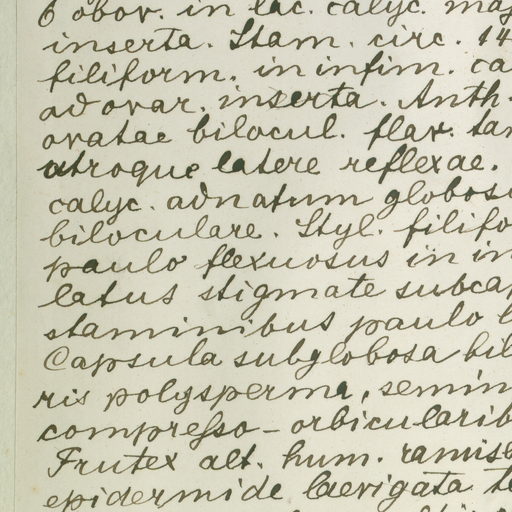 6 obov. in lac. calyc.
inserta. Stam. circ. 14
filiform. in infim. ca
ad ovar. inserta. Anth.
ovatae bilocul. flav. tan
utroque latere reflexae.
calyc. adnatum globos
biloculare. Styl. filifo
paulo flexuosus in in
latus stigmate subcap
staminibus paulo l
Capsula subglobosa bil
ris polysperma, semin
compresso-orbicularib
Frutex alt. hum. ramis
epidermide laevigata te